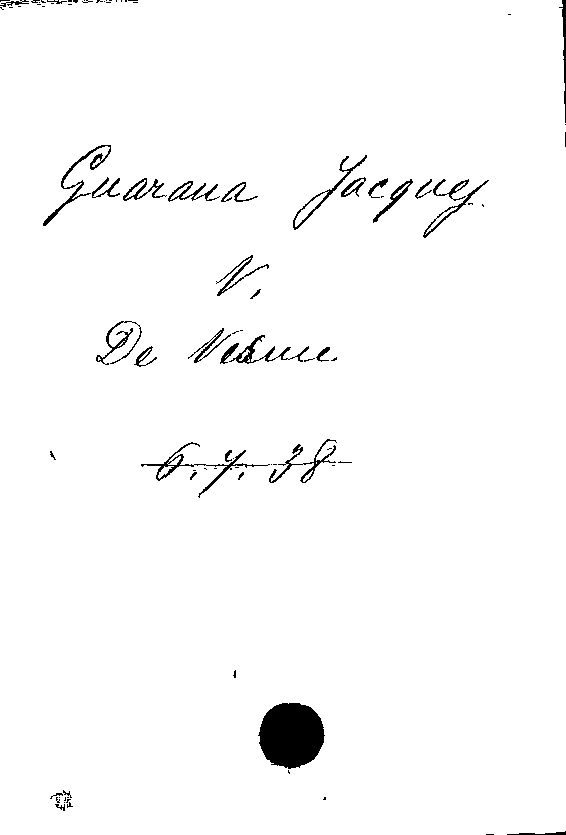 Guarana Jacques.
V.
De Vesme
6.7.38